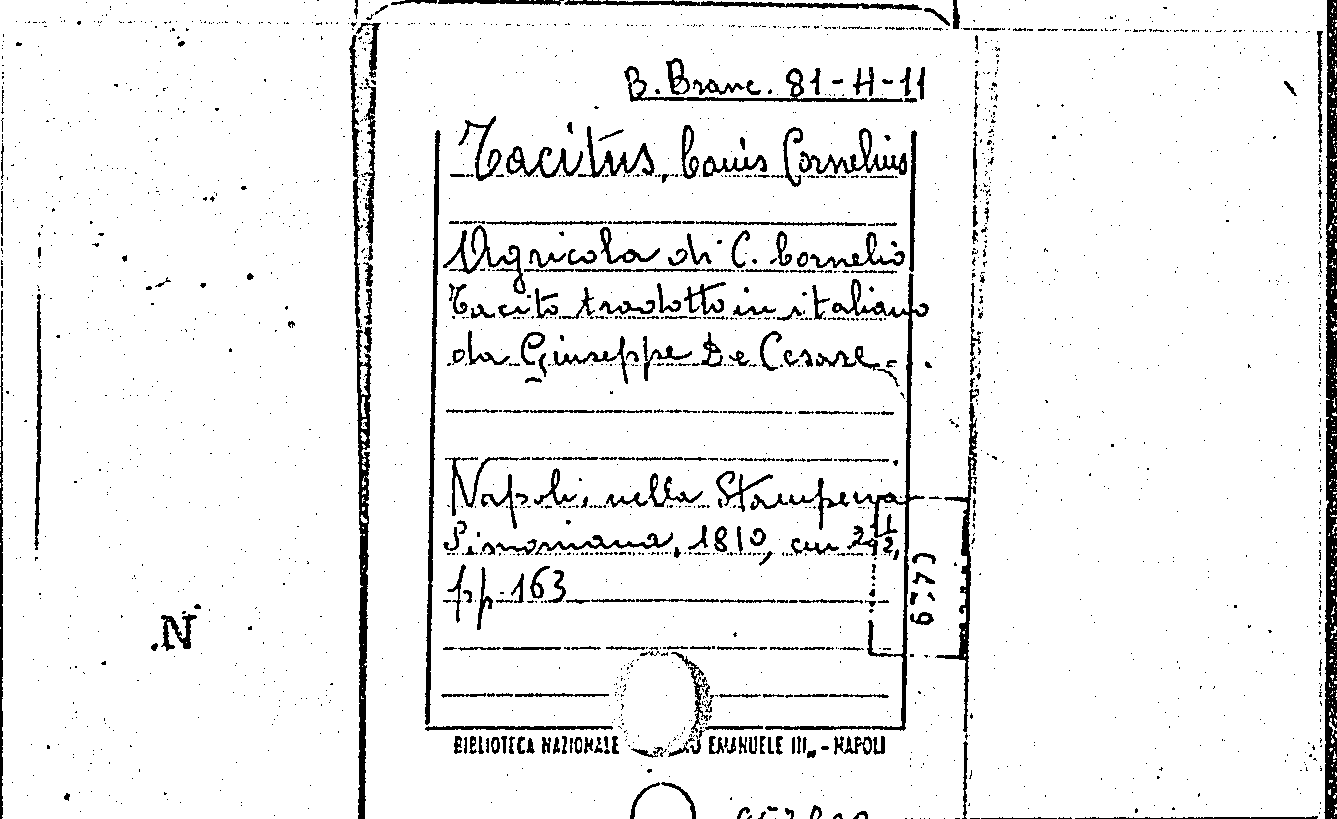 B. Branc. 81-H-11
Tacitus, Caius Cornelius
Agricola di C. Cornelio
Tacito tradotto in italiano
da Giuseppe De Cesare.
Napoli, nella Stamperia
Simoniana, 1810, cm
pp. 163
N.
BIBLIOTECA NAZIONALE O EMANUELE III„ - NAPOLI